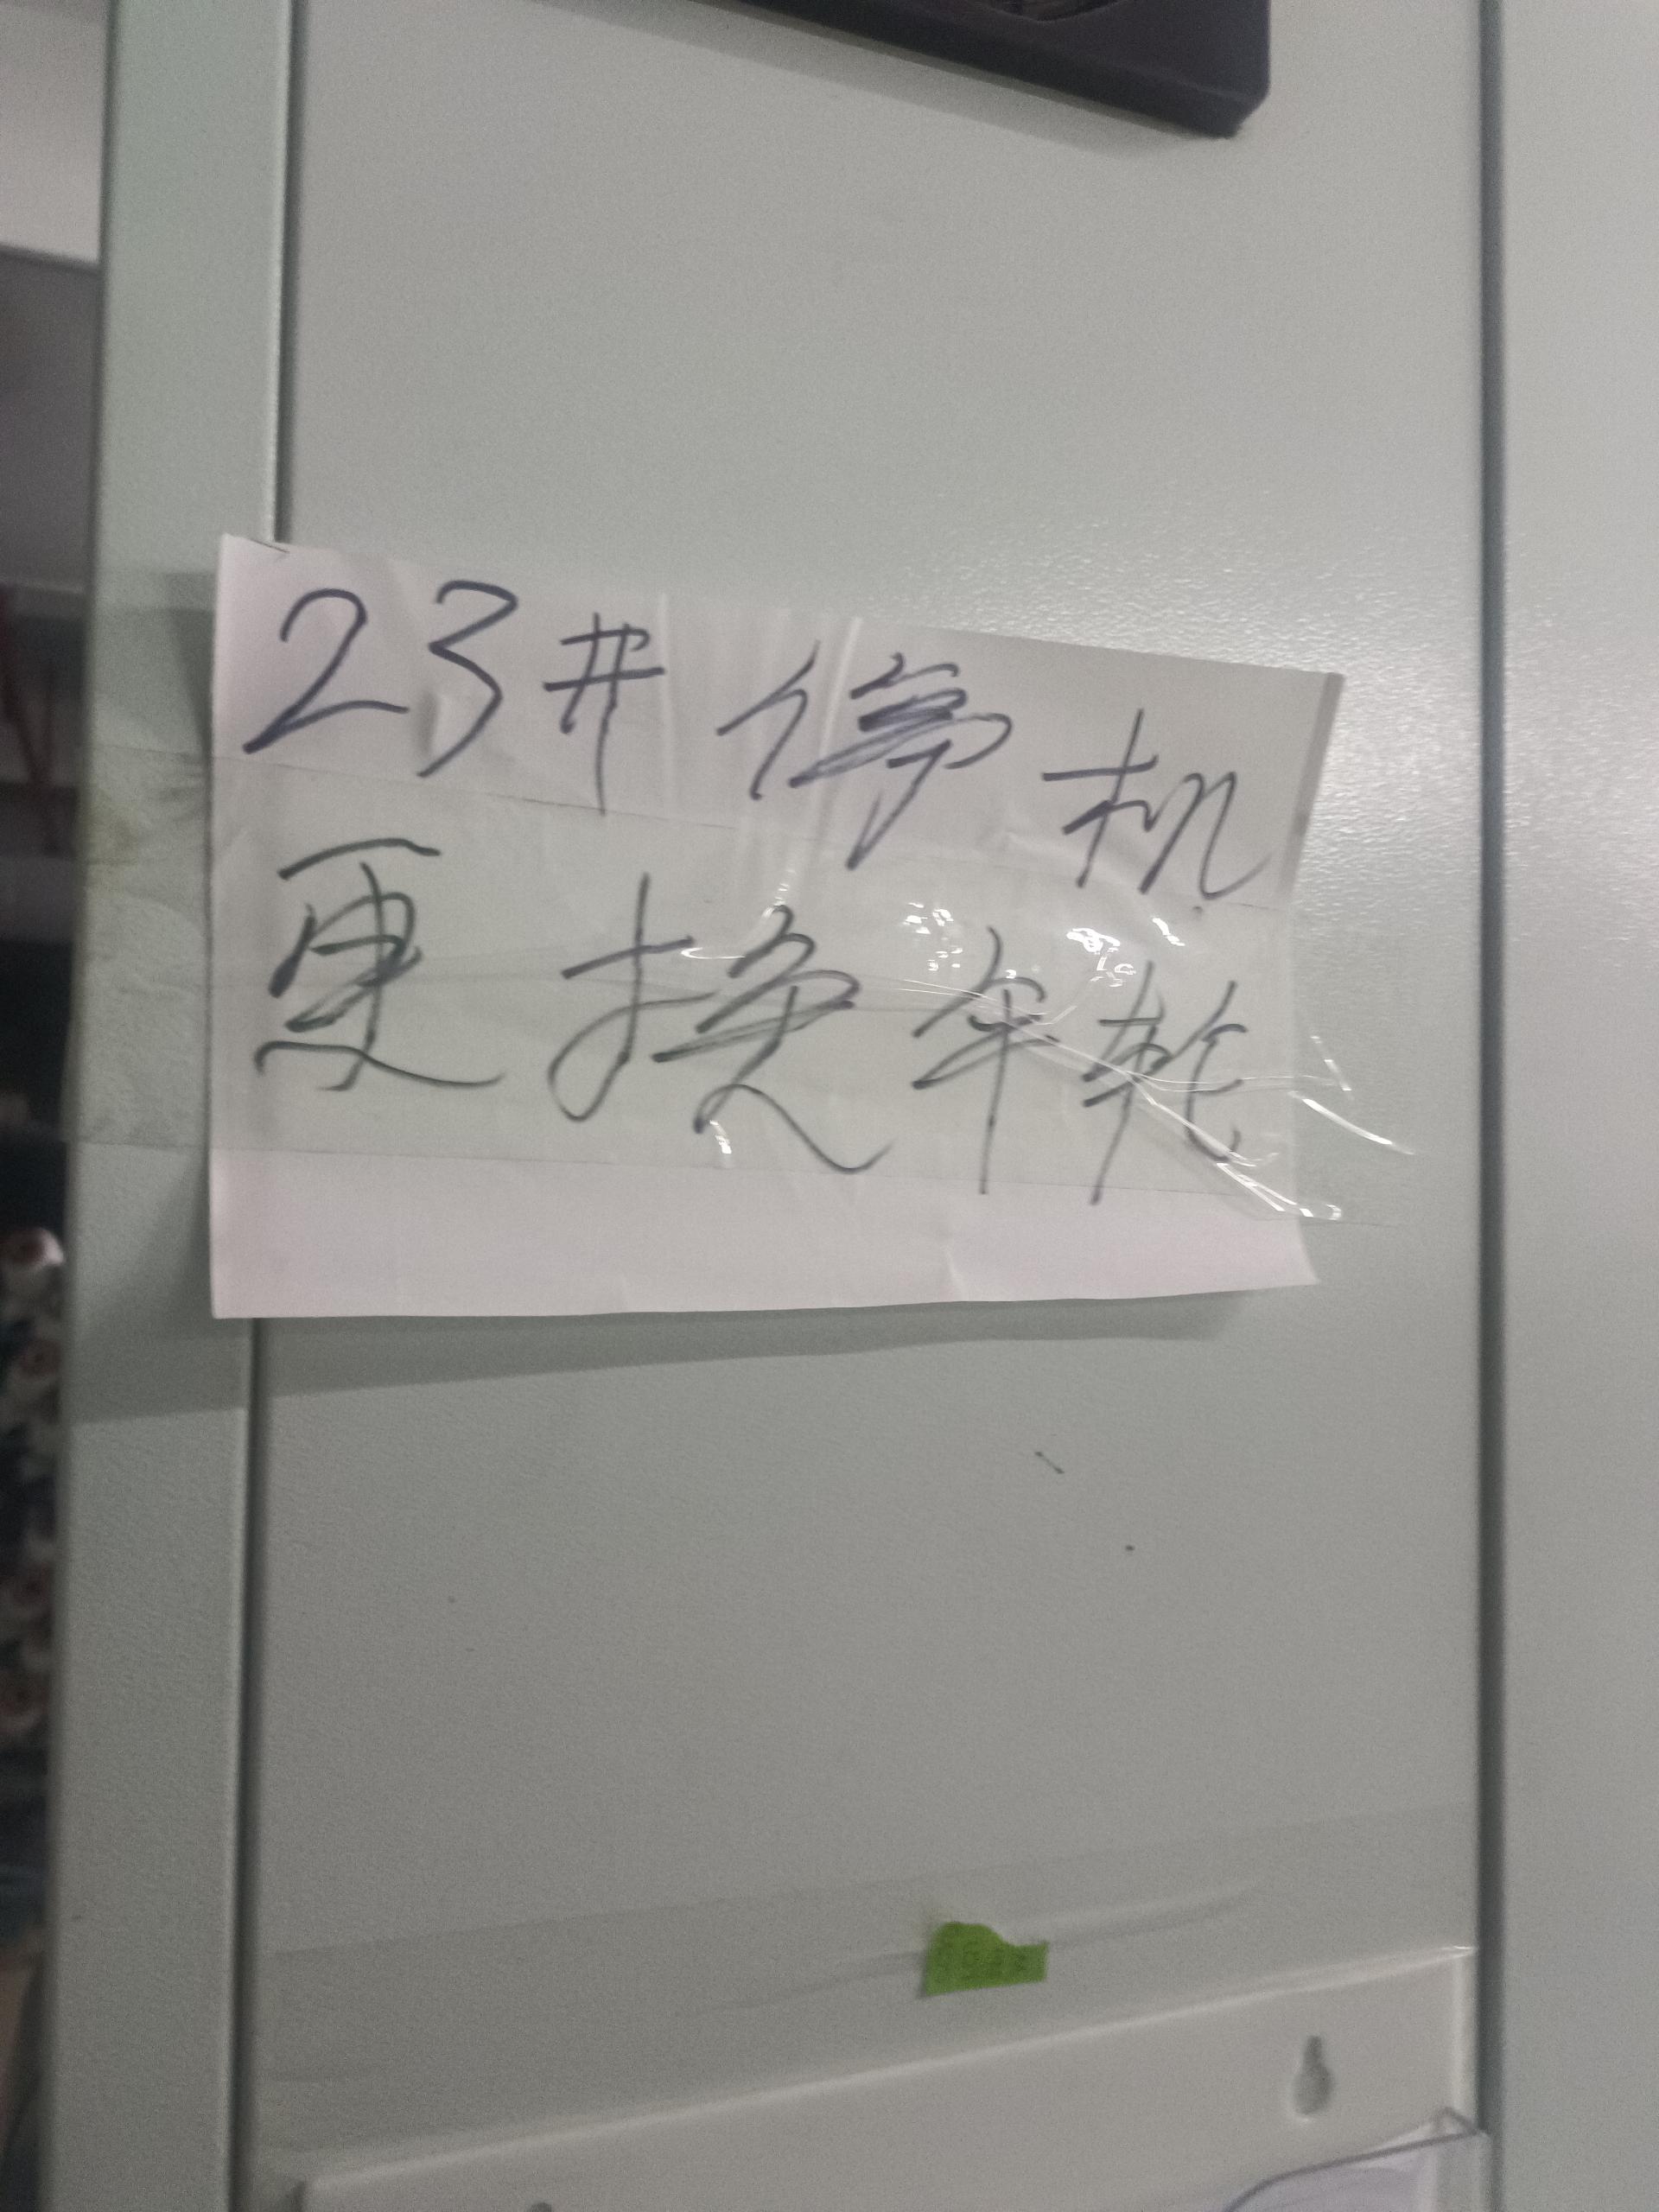 23# 停机
更换年轮